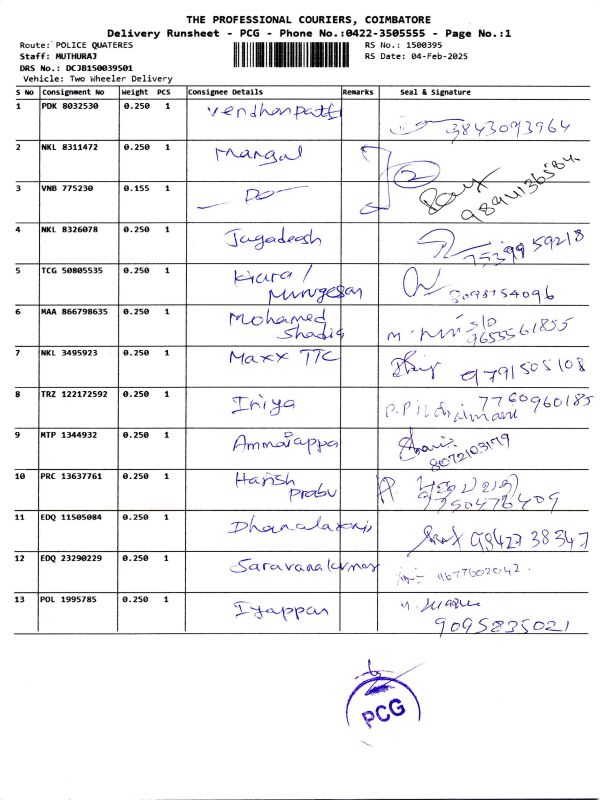 THE PROFESSIONAL COURIERS, COIMBATORE
Delivery Runsheet - PCG - Phone No.:0422-3505555 - Page No.:1
Route: POLICE QUATERES
RS No.: 1500395
Staff: MUTHURAJ
RS Date: 04-Feb-2025
DRS No.: DCJB150039501
Vehicle: Two Wheeler Delivery
S No Consignment No Weight PCS Consignee Details Remarks Seal & Signature
1 PDK 8032530 0.250 1 Vendhanpatti
9843093964
2 NKL 8311472 0.250 1 Mangal
2
3 VNB 775230 0.155 1 — DO —
9894136584
4 NKL 8326078 0.250 1 Jagadeesh
7539959218
5 TCG 50805535 0.250 1 Kiara /
Murugesan
8098154096
6 MAA 866798635 0.250 1 Mohamed
Shadiq
S/O
9655561855
7 NKL 3495923 0.250 1 Maxx TTC
9791505108
8 TRZ 122172592 0.250 1 Iniya
7760960185
9 MTP 1344932 0.250 1 Ammaiappa
8072103179
10 PRC 13637761 0.250 1 Harish
Prabu
9750476409
11 EDQ 11505084 0.250 1
9842738347
12 EDQ 23290229 0.250 1 Saravanakumar
9677602042
13 POL 1995785 0.250 1 Iyappan
9095835021
PCG